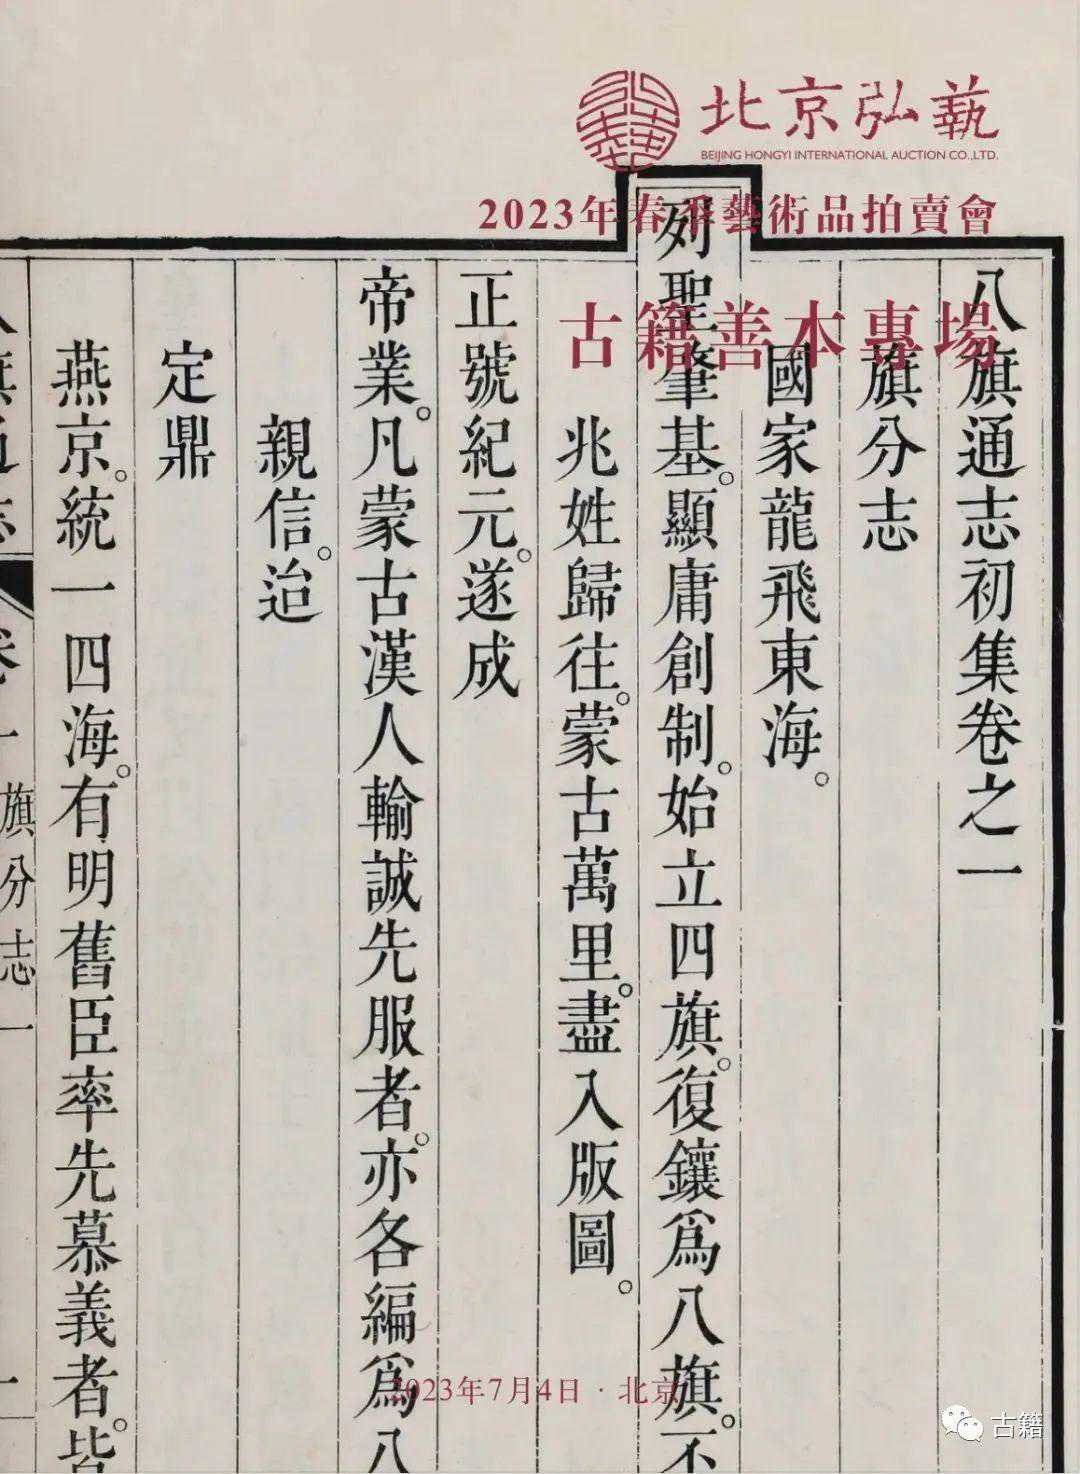 北京弘藝
BEIJING HONGYI INTERNATIONAL AUCTION CO.,LTD.
2023年春季藝術品拍賣會
古籍善本專場
八旗通志初集卷之一
旗分志
國家龍飛東海。
列聖肇基。顯庸創制。始立四旗。復鑲爲八旗。不
兆姓歸往。蒙古萬里。盡入版圖。
正號紀元。遂成
帝業。凡蒙古漢人輸誠先服者。亦各編爲八
親信。迨
定鼎
燕京。統一四海。有明舊臣率先慕義者。皆
八旗通志 卷一 旗分志一 一
2023年7月4日·北京
古籍